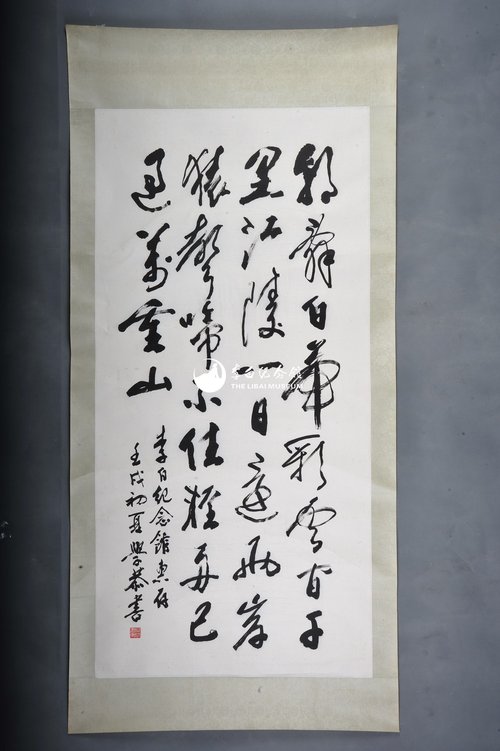 朝辭白帝彩雲间千
里江陵一日還兩岸
猿聲啼不住輕舟已
過萬重山
李白纪念館惠存
壬戌初夏學恭書
李白纪念馆
THE LIBAI MUSEUM